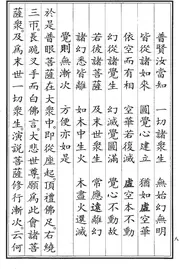 普賢汝當知　一切諸衆生　無始幻無明
皆從諸如來　圓覺心建立　猶如虛空華
依空而有相　空華若復滅　虛空本不動
幻從諸覺生　幻滅覺圓滿　覺心不動故
若彼諸菩薩　及末世衆生　常應遠離幻
諸幻悉皆離　如木中生火　木盡火還滅
覺則無漸次　方便亦如是
於是普眼菩薩在大衆中即從座起頂禮佛足右繞
三帀長跪叉手而白佛言大悲世尊願爲此會諸菩
薩衆及爲末世一切衆生演說菩薩修行漸次云何
八